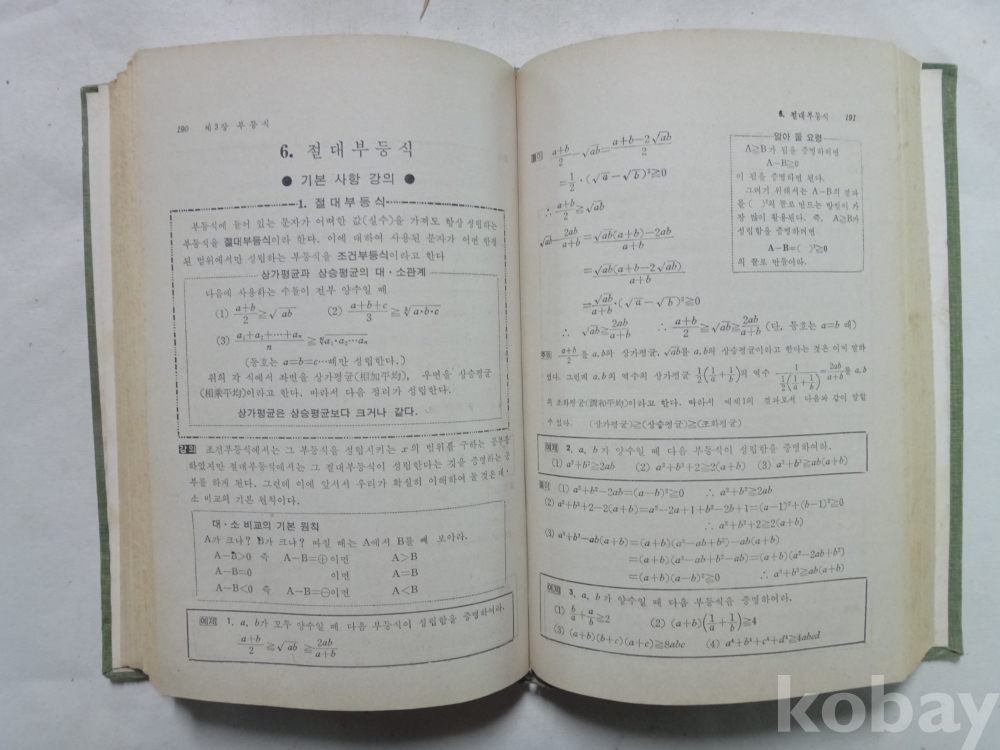 190 제3장 부등식
6. 절대부등식
● 기본 사항 강의 ●
1. 절대부등식
부등식에 들어 있는 문자가 어떠한 값(실수)을 가져도 항상 성립하는
부등식을 절대부등식이라 한다. 이에 대하여 사용된 문자가 어떤 한정
된 범위에서만 성립하는 부등식을 조건부등식이라고 한다
상가평균과 상승평균의 대·소관계
다음에 사용하는 수들이 전부 양수일 때
(1) (a+b)/2 ≧ √ab (2) (a+b+c)/3 ≧ ∛a·b·c
(3) (a₁+a₂+⋯+aₙ)/n ≧ ⁿ√a₁·a₂⋯aₙ
(등호는 a=b=c⋯때만 성립한다.)
위의 각 식에서 좌변을 상가평균(相加平均), 우변을 상승평균
(相乘平均)이라고 한다. 따라서 다음 정리가 성립한다.
상가평균은 상승평균보다 크거나 같다.
강의 조건부등식에서는 그 부등식을 성립시키는 x의 범위를 구하는 공부를
하였지만 절대부등식에서는 그 절대부등식이 성립한다는 것을 증명하는 공
부를 하게 된다. 그런데 이에 앞서서 우리가 확실히 이해하여 둘 것은 대·
소 비교의 기본 원칙이다.
대·소 비교의 기본 원칙
A가 크냐? B가 크냐? 따질 때는 A에서 B를 빼 보아라.
A−B>0 즉 A−B=⊕이면 A>B
A−B=0 이면 A=B
A−B<0 즉 A−B=⊖이면 A<B
예제 1. a, b가 모두 양수일 때 다음 부등식이 성립함을 증명하여라.
(a+b)/2 ≧ √ab ≧ 2ab/(a+b)
6. 절대부등식 191
(a+b)/2 − √ab = (a+b−2√ab)/2
= 1/2·(√a−√b)²≧0
∴ (a+b)/2 ≧ √ab
√ab − 2ab/(a+b) = (√ab(a+b)−2ab)/(a+b)
= √ab(a+b−2√ab)/(a+b)
= √ab/(a+b)·(√a−√b)²≧0
∴ √ab ≧ 2ab/(a+b) ∴ (a+b)/2 ≧ √ab ≧ 2ab/(a+b) (단, 등호는 a=b 때)
알아 둘 요령
A≧B가 됨을 증명하려면
A−B≧0
이 됨을 증명하면 된다.
그러기 위해서는 A−B의 결과
를 ( )²의 꼴로 만드는 방법이 가
장 많이 활용된다. 즉, A≧B가
성립함을 증명하려면
A−B=( )²≧0
의 꼴로 만들어라.
주의 (a+b)/2를 a, b의 상가평균, √ab를 a, b의 상승평균이라고 한다는 것은 이미 말하
였다. 그런데 a, b의 역수의 상가평균 1/2(1/a+1/b)의 역수 1/(1/2(1/a+1/b)) = 2ab/(a+b)를 a, b
의 조화평균(調和平均)이라고 한다. 따라서 예제1의 결과로서 다음과 같이 말할
수 있다. (상가평균)≧(상승평균)≧(조화평균)
예제 2. a, b가 양수일 때 다음 부등식이 성립함을 증명하여라.
(1) a²+b²≧2ab (2) a²+b²+2≧2(a+b) (3) a³+b³≧ab(a+b)
(1) a²+b²−2ab=(a−b)²≧0 ∴ a²+b²≧2ab
(2) a²+b²+2−2(a+b)=a²−2a+1+b²−2b+1=(a−1)²+(b−1)²≧0
∴ a²+b²+2≧2(a+b)
(3) a³+b³−ab(a+b)=(a+b)(a²−ab+b²)−ab(a+b)
=(a+b)(a²−ab+b²−ab)=(a+b)(a²−2ab+b²)
=(a+b)(a−b)²≧0 ∴ a³+b³≧ab(a+b)
예제 3. a, b가 양수일 때 다음 부등식을 증명하여라.
(1) b/a+a/b≧2 (2) (a+b)(1/a+1/b)≧4
(3) (a+b)(b+c)(a+c)≧8abc (4) a⁴+b⁴+c⁴+d⁴≧4abcd
kobay